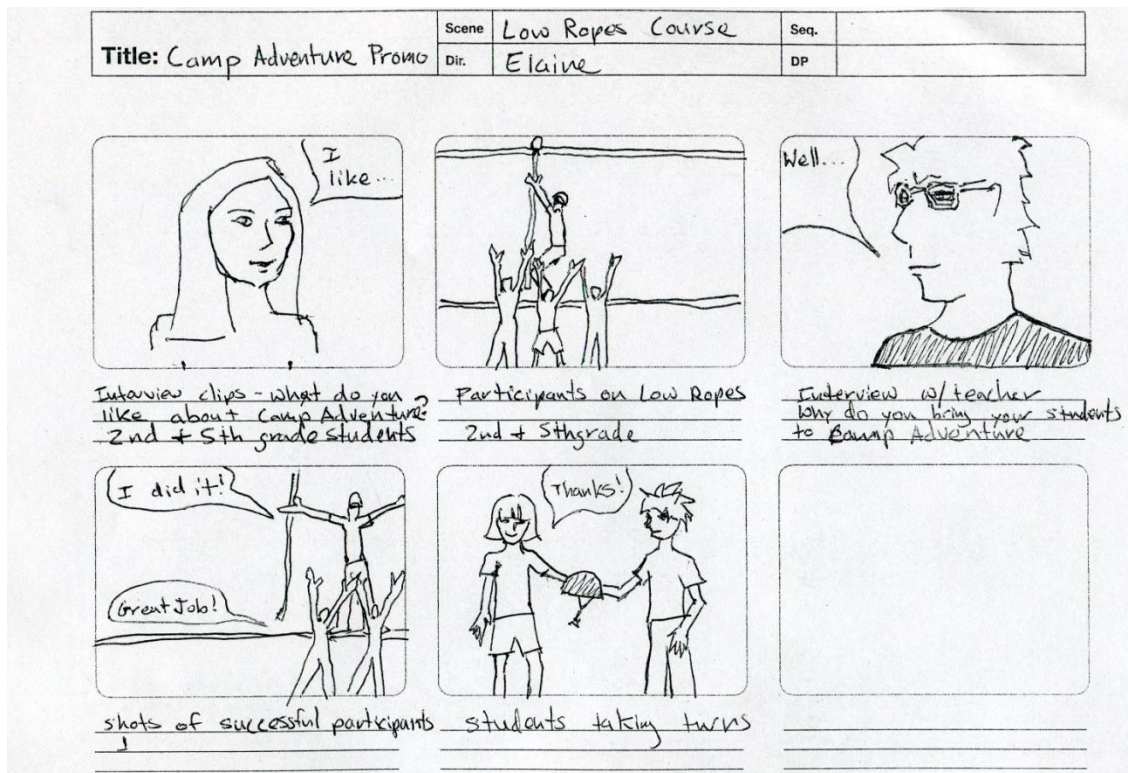 Title: Camp Adventure Promo
Scene Low Ropes Course
Dir. Elaine
Seq.
DP
I
like...
Well...
Interview clips - what do you
like about Camp Adventure?
2nd + 5th grade students
Participants on Low Ropes
2nd + 5th grade
Interview w/ teacher
Why do you bring your students
to Camp Adventure
I did it!
Great Job!
Thanks!
shots of successful participants
students taking turns